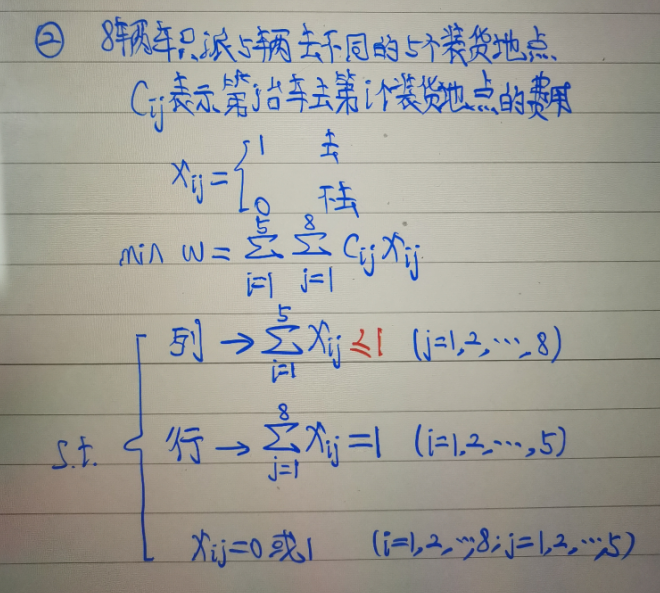 ② 8辆车只派5辆去不同的5个装货地点
Cij表示第j台车去第i个装货地点的费用
xij={1 去
0 不去
min w=∑(i=1→5)∑(j=1→8)CijXij
s.t. {列→∑(i=1→5)Xij≤1 (j=1,2,…,8)
行→∑(j=1→8)Xij=1 (i=1,2,…,5)
xij=0或1 (i=1,2,…,8; j=1,2,…,5)